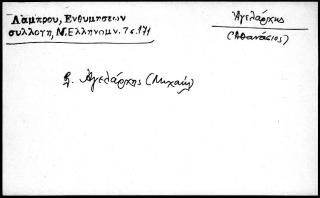 Λάμπρου, Ἐνθυμήσεων
συλλογή, Ν. Ἑλληνομν. 7 σ. 171
Ἀγελάρχης
(Ἀθανάσιος)
Ἀγελάρχης (Μιχαήλ)